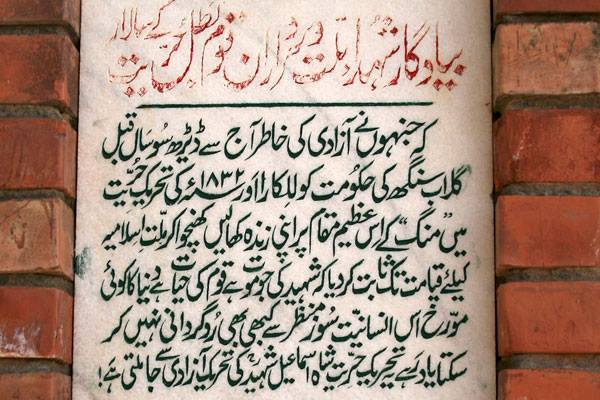 بیادگار شہداء ملت و برادران قوم بطل حریت کے سالار
کہ جنہوں نے آزادی کی خاطر آج سے ڈیڑھ سو سال قبل
گلاب سنگھ کی حکومت کو للکارا اور ۱۸۳۲ء کی تحریک حریت
میں ”منگ“ کے اس عظیم مقام پر اپنی زندہ کھالیں کھنچوا کر ملت اسلامیہ
کیلئے قیامت تک ثابت کر دیا کہ شہید کی جو موت ہے قوم کی حیات ہے دنیا کا کوئی
مورخ اس انسانیت سوز منظر سے کبھی بھی روگردانی نہیں کر
سکتا یاد رہے یہ تحریک حریت شاہ اسماعیل شہیدؒ کی تحریک آزادی سے جا ملتی ہے!